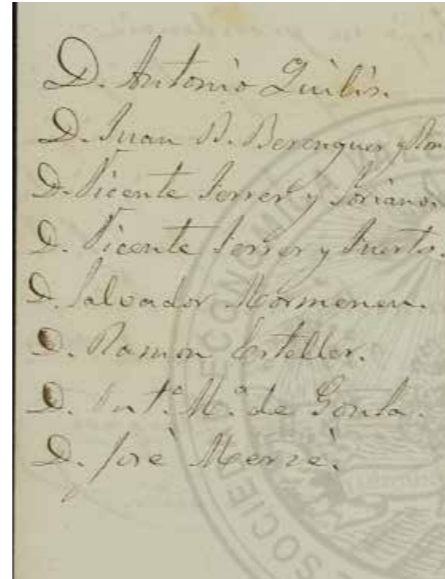 D. Antonio Quilis.
D. Juan B. Berenguer y
D. Vicente Ferrer y Soriano.
D. Vicente Ferrer y Puerto.
D. Salvador Mormeneu.
D. Ramon Esteller.
D. Ant.º M.ª de Goula.
D. José
SOCIEDAD ECONOMICA